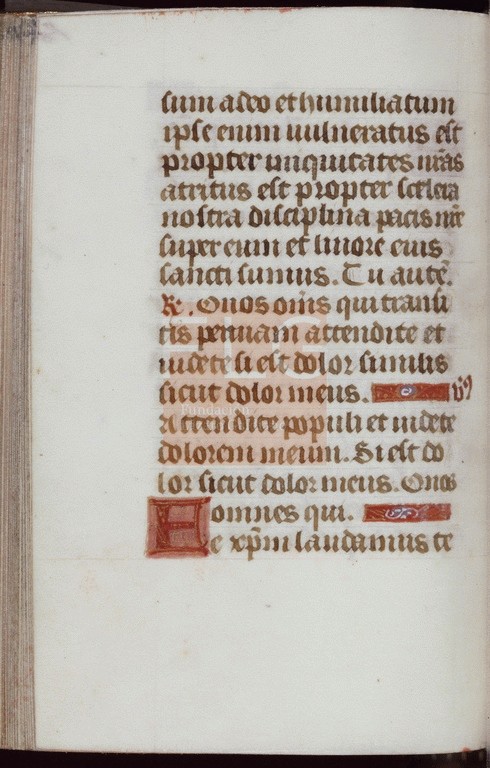 sum a deo et humiliatum
ipse enim uulneratus est
propter iniquitates nr̃as
atritus est propter scelera
nostra disciplina pacis nr̃e
super eum et liuore eius
sancti sumus. Tu autẽ.
R. O uos om̃s qui transi
tis per uiam attendite et
uidete si est dolor similis
sicut dolor meus. v̾
Attendite populi et uidete
dolorem meum. Si est do
lor sicut dolor meus. O uos
omnes qui.
Te xp̃m laudamus te
Fundación